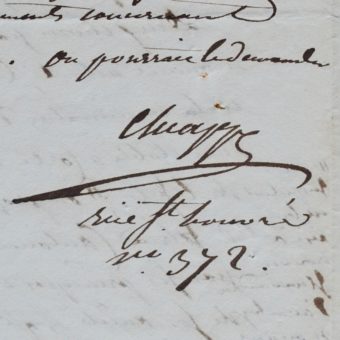 ments concernant
. on pourrai le demander
Chiapp
rue St honoré
n° 372.